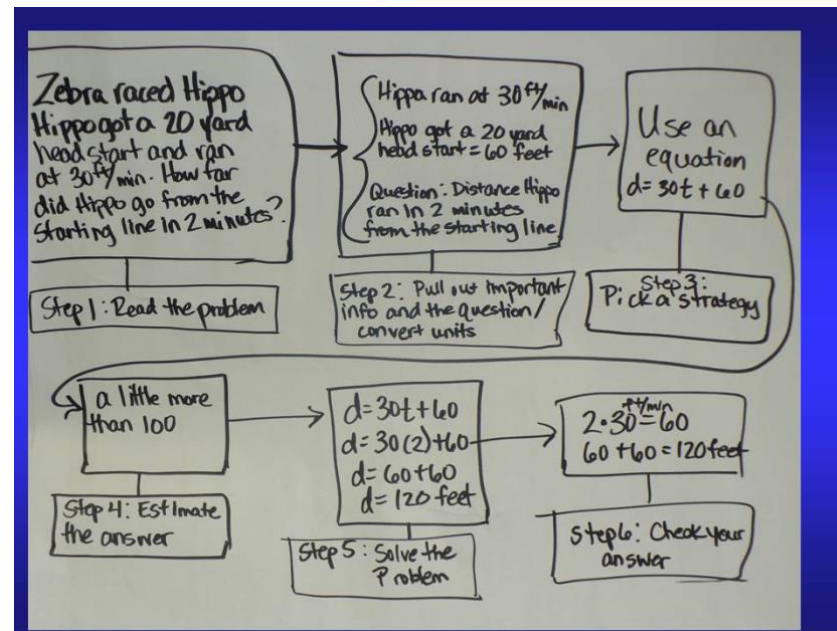 Zebra raced Hippo
Hippo got a 20 yard
head start and ran
at 30 ft/min. How far
did Hippo go from the
starting line in 2 minutes?
Step 1: Read the problem
Hippa ran at 30 ft/min
Hippo got a 20 yard
head start = 60 feet
Question: Distance Hippo
ran in 2 minutes
from the starting line
Step 2: Pull out important
info and the question/
convert units
Use an
equation
d = 30t + 60
Step 3:
Pick a strategy
a little more
than 100
Step 4: Estimate
the answer
d = 30t + 60
d = 30(2) + 60
d = 60 + 60
d = 120 feet
Step 5: Solve the
Problem
2 • 30 ft/min = 60
60 + 60 = 120 feet
Step 6: Check your
answer